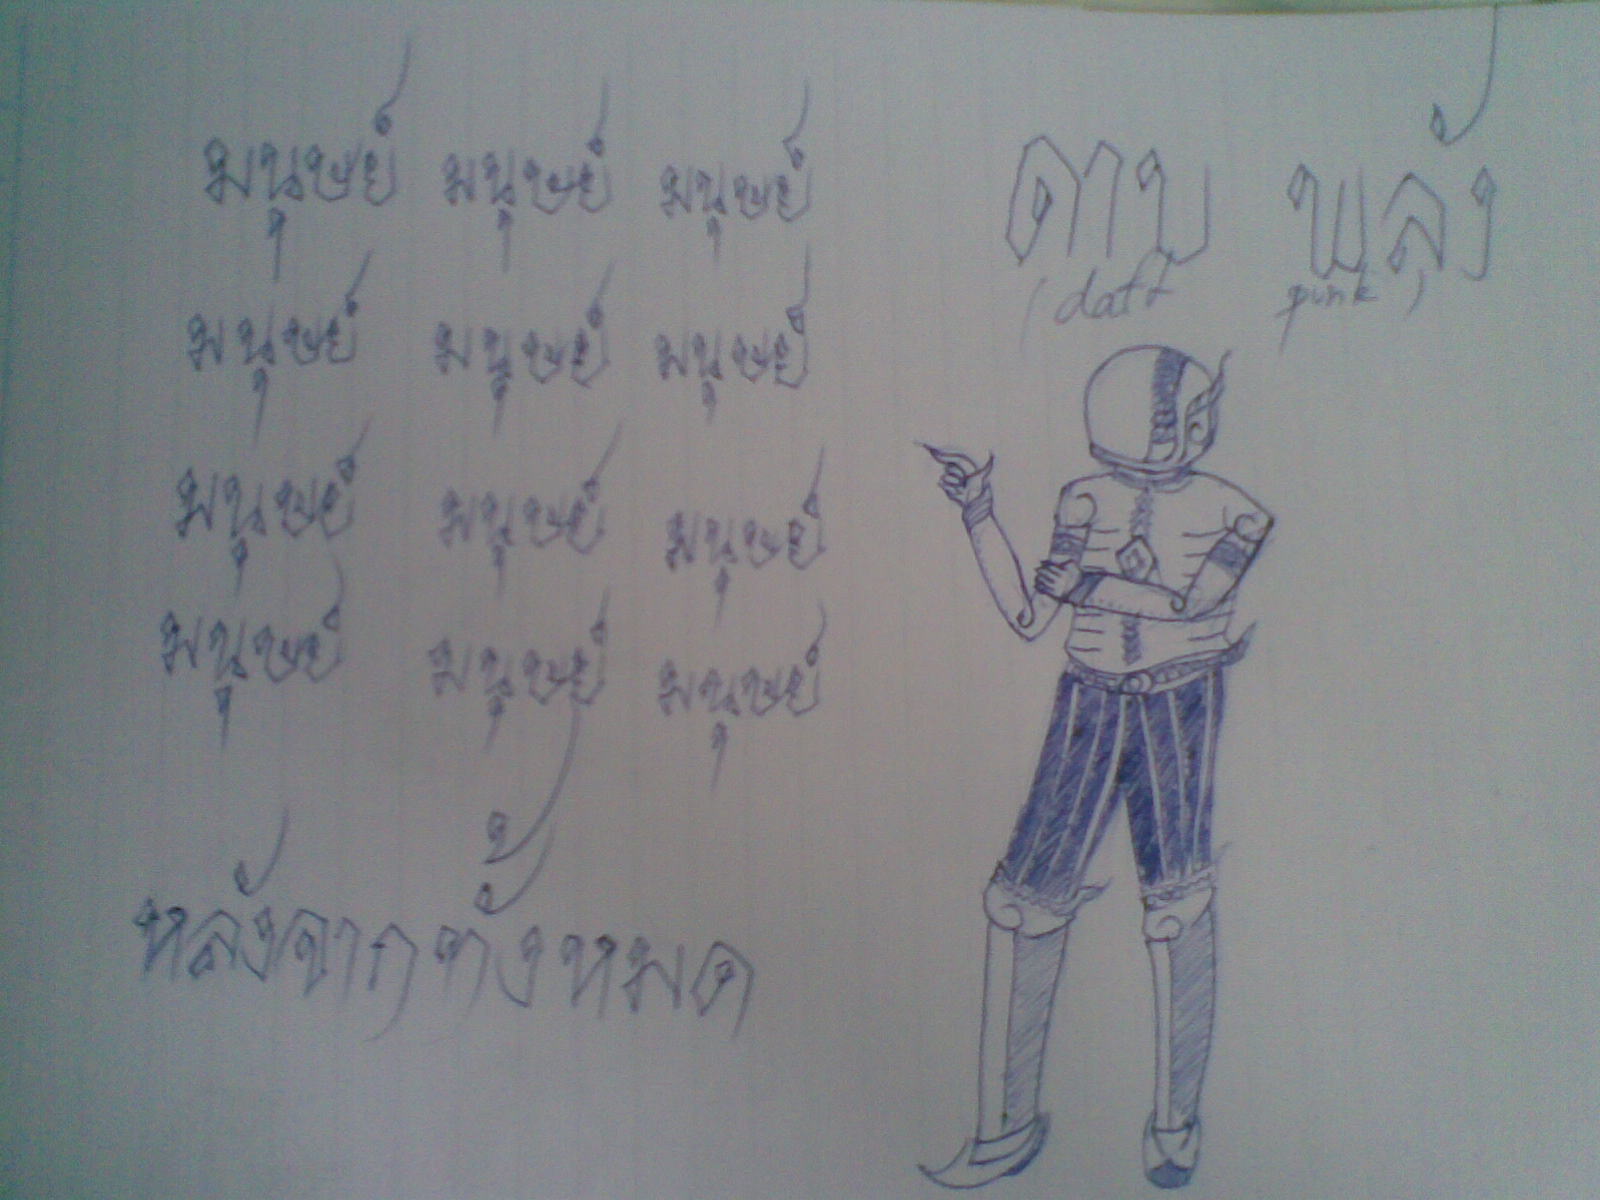 มนุษย์ มนุษย์ มนุษย์
มนุษย์ มนุษย์ มนุษย์
มนุษย์ มนุษย์ มนุษย์
มนุษย์ มนุษย์ มนุษย์
หลังจากทั้งหมด
ดาบ พลัง
(daft punk)